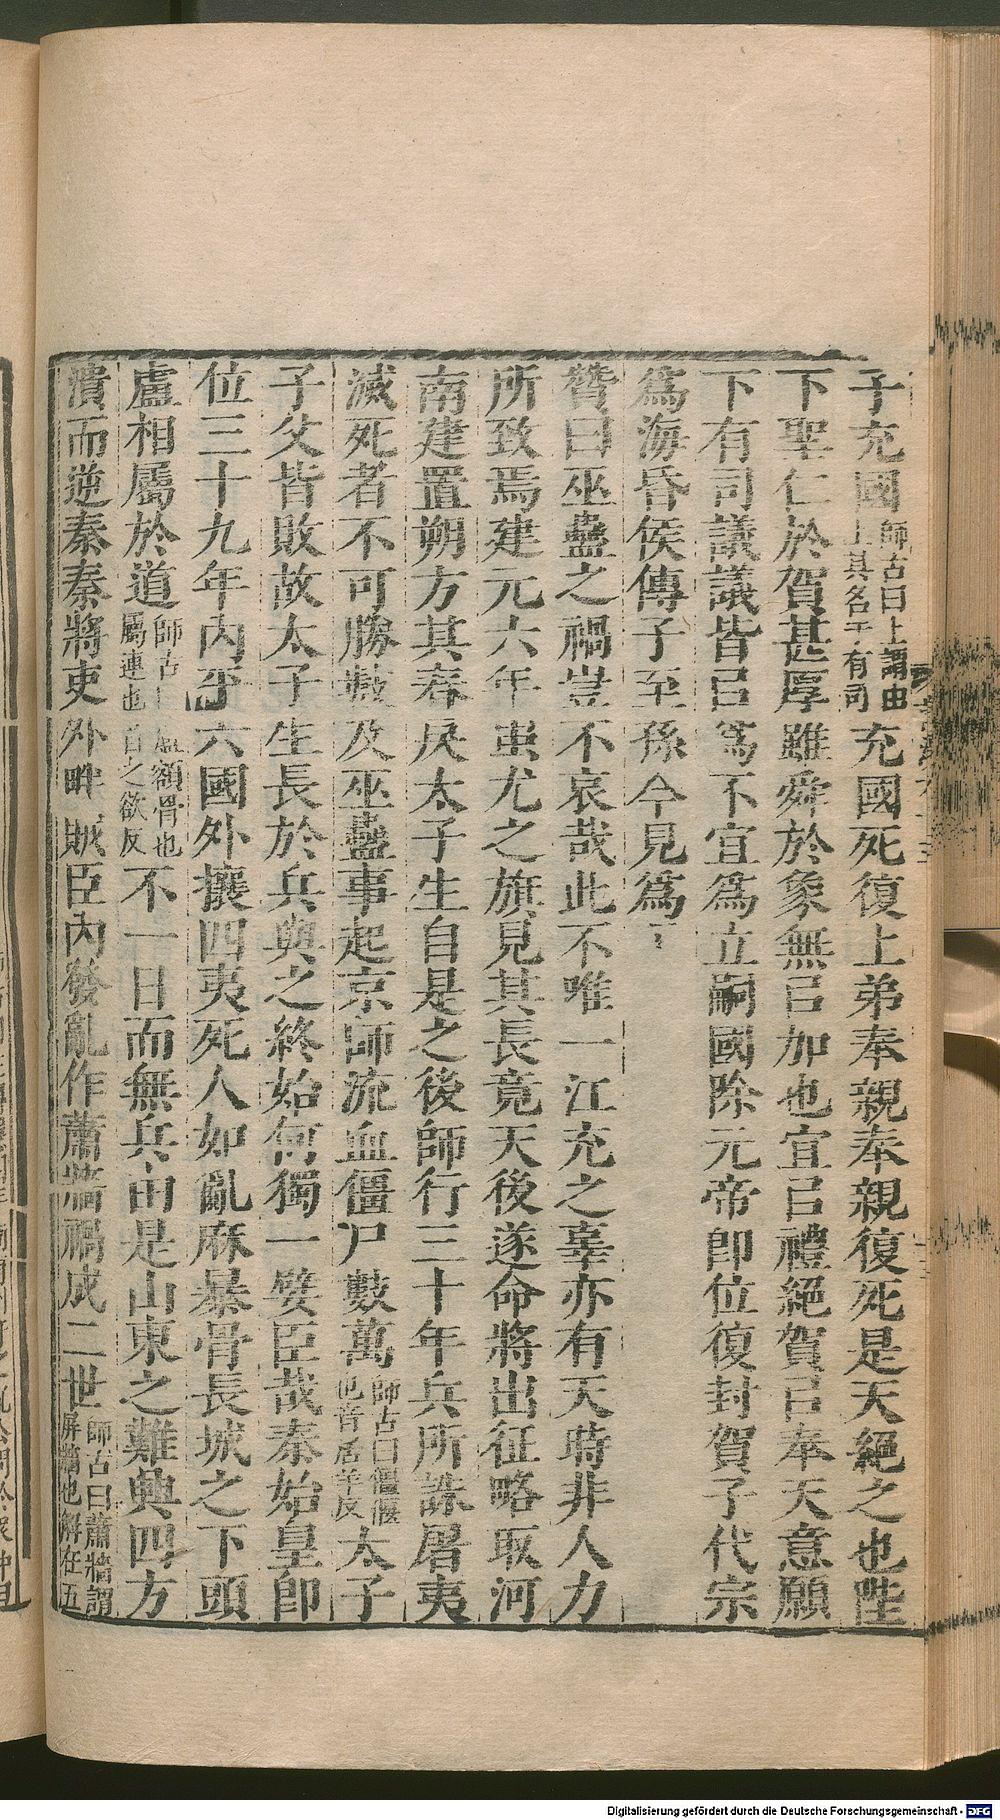 子充國師古曰上謂由上其名于有司充國死復上弟奉親奉親復死是天絕之也陛
下聖仁於賀甚厚雖舜於象無㠯加也宜㠯禮絕賀㠯奉天意願
下有司議議皆㠯為不宜為立嗣國除元帝即位復封賀子代宗
為海昏侯傳子至孫今見為
贊曰巫蠱之禍豈不哀哉此不唯一江充之辜亦有天時非人力
所致焉建元六年蚩尤之旗見其長竟天後遂命將出征略取河
南建置朔方其春戾太子生自是之後師行三十年兵所誅屠夷
滅死者不可勝數及巫蠱事起京師流血僵尸數萬師古曰僵偃也音居羊反太子
子父皆敗故太子生長於兵與之終始何獨一嬖臣哉秦始皇即
位三十九年內平六國外攘四夷死人如亂麻暴骨長城之下頭
盧相屬於道師古曰盧額骨也屬連也音之欲反不一日而無兵由是山東之難興四方
潰而逆秦秦將吏外畔賊臣內發亂作蕭牆禍成二世師古曰蕭牆謂屏牆也解在五
Digitalisierung gefördert durch die Deutsche Forschungsgemeinschaft - DFG